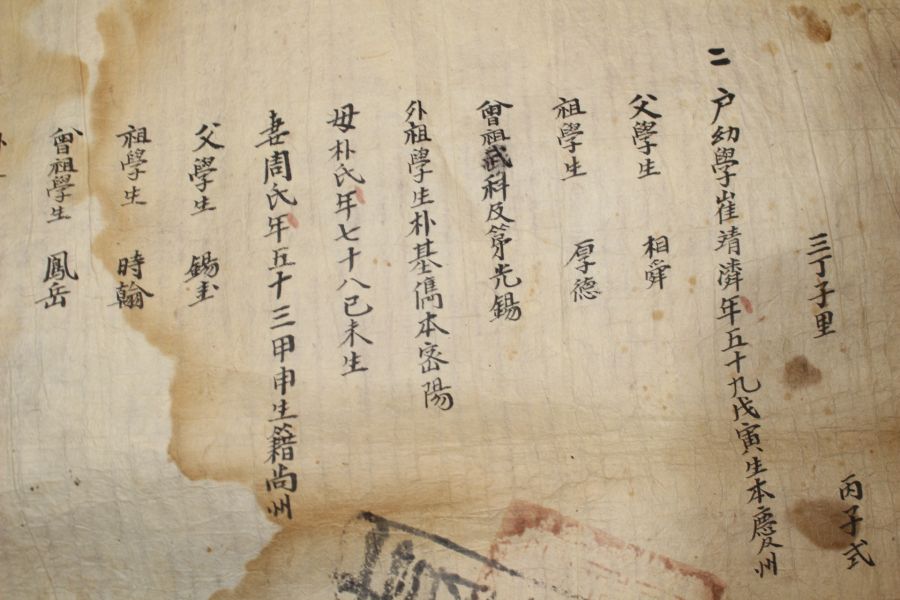 丙子式
三丁子里
二
戶幼學崔靖濟年五十九戊寅生本慶州
父學生 相舜
祖學生 厚德
曾祖武科及第光錫
外祖學生朴基儁本密陽
母朴氏年七十八己未生
妻周氏年五十三甲申生籍尙州
父學生 錫圭
祖學生 時翰
曾祖學生 鳳岳
外